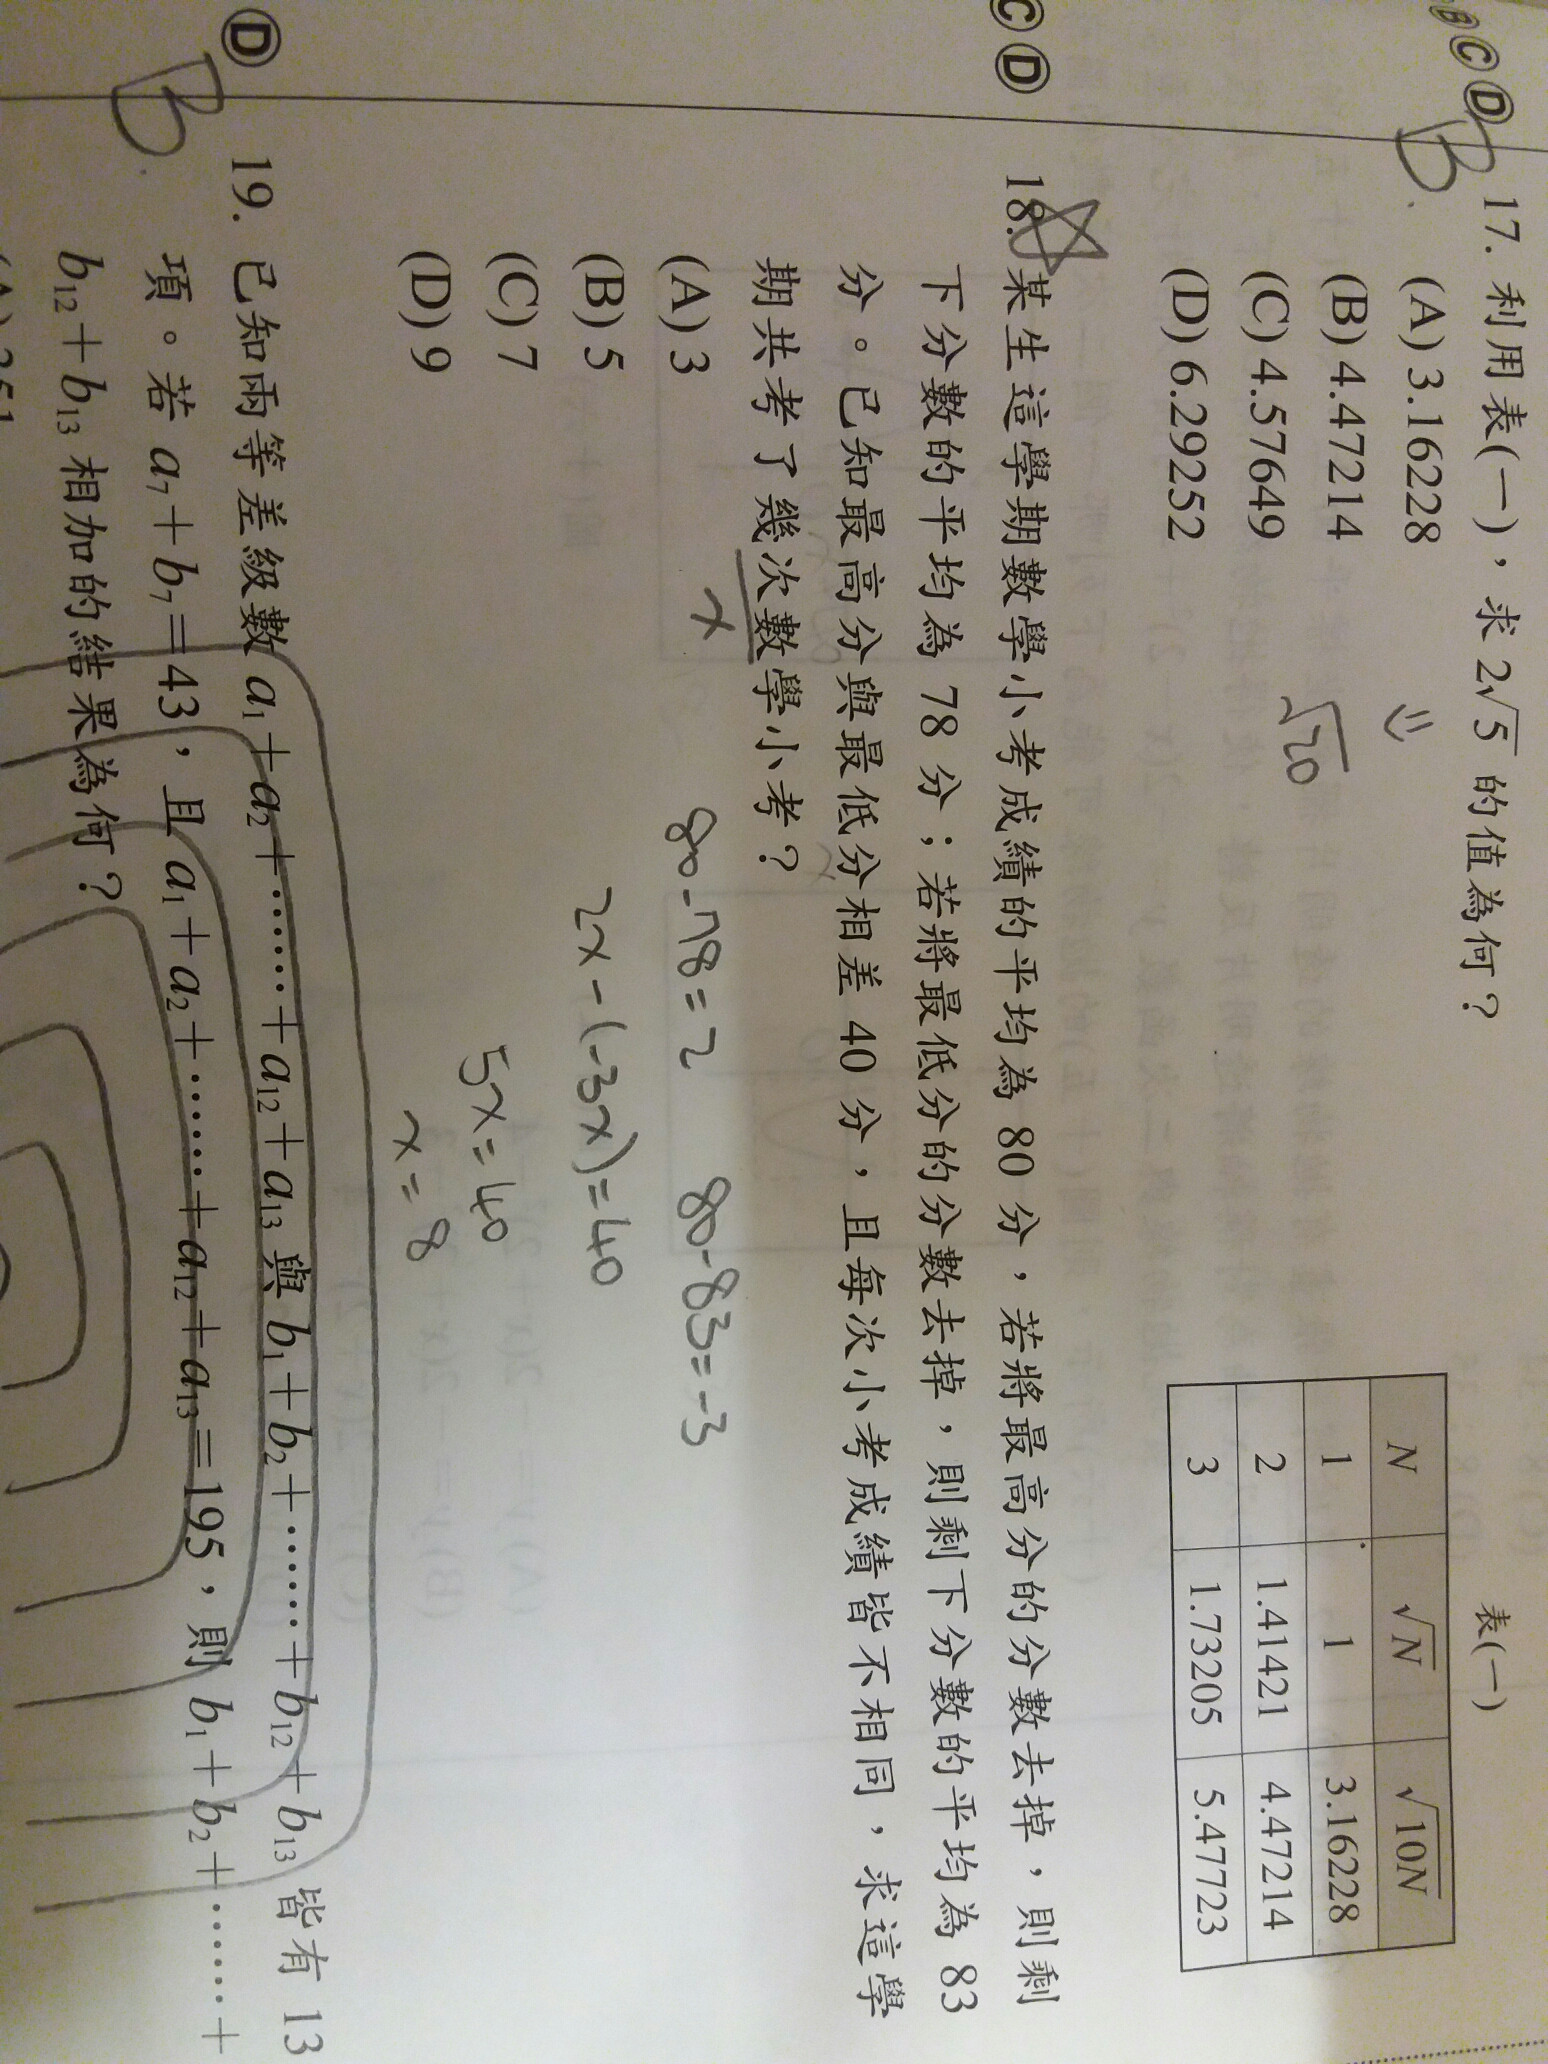 B C D
B
17. 利用表(一)，求 2√5 的值為何？
(A) 3.16228
(B) 4.47214
(C) 4.57649
(D) 6.29252
√20
表(一)
N √N √10N
1 1 3.16228
2 1.41421 4.47214
3 1.73205 5.47723
C D
18. 某生這學期數學小考成績的平均為 80 分，若將最高分的分數去掉，則剩
下分數的平均為 78 分；若將最低分的分數去掉，則剩下分數的平均為 83
分。已知最高分與最低分相差 40 分，且每次小考成績皆不相同，求這學
期共考了幾次數學小考？
x
(A) 3
(B) 5
(C) 7
(D) 9
80-78=2 80-83=-3
2x-(-3x)=40
5x=40
x=8
D
B
19. 已知兩等差級數 a₁＋a₂＋……＋a₁₂＋a₁₃ 與 b₁＋b₂＋……＋b₁₂＋b₁₃ 皆有 13
項。若 a₇＋b₇＝43，且 a₁＋a₂＋……＋a₁₂＋a₁₃＝195，則 b₁＋b₂＋……＋
b₁₂＋b₁₃ 相加的結果為何？